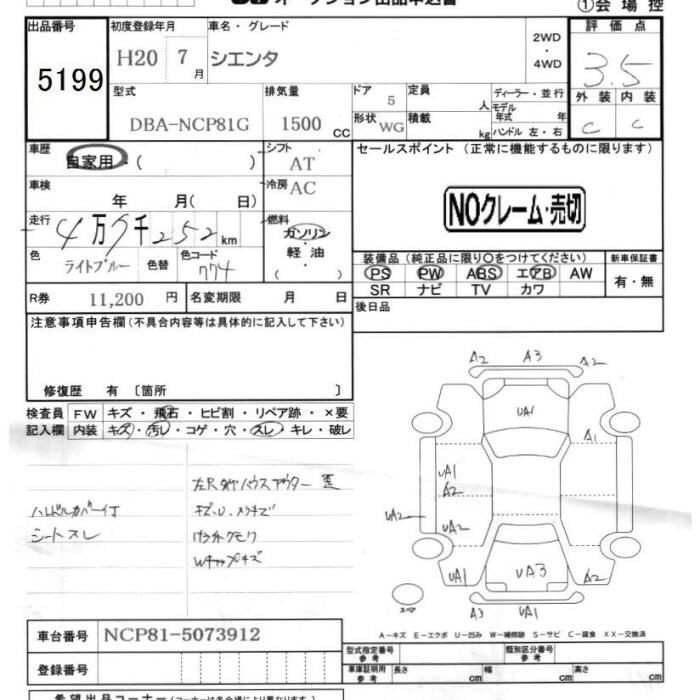 オークション出品申込書
①会場控
出品番号
5199
初度登録年月
H20 7月
車名・グレード
シエンタ
2WD
・
4WD
評価点
3.5
外装 内装
C C
型式
DBA-NCP81G
排気量
1500 CC
ドア 5
形状 WG
定員 人
積載 kg
ディーラー・並行
モデル年式 年式
ハンドル 左・右
車歴
自家用・( )
シフト AT
冷房 AC
車検 年 月( 日)
走行 4万7千252km
燃料 ガソリン
軽油
色 ライトブルー 色替 色コード 774
セールスポイント (正常に機能するものに限ります)
NOクレーム・売切
装備品 (純正品に限り○をつけてください)
新車保証書
PS PW ABS エアB AW
有・無
SR ナビ TV カワ
R券 11,200 円 名変期限 月 日
後日品
注意事項申告欄(不具合内容等は具体的に記入して下さい)
修復歴 有 〔箇所 〕
検査員 FW キズ・飛石・ヒビ割・リペア跡・×要
記入欄 内装 キズ・汚レ・コゲ・穴・スレ・キレ・破レ
ハンドルカバー付
シートスレ
キズ・U・スリキズ
Wキャップキズ
A2 A3 A2
UA1
A1
UA1
A2
UA2
UA2
UA1 UA3 A2
スペア
A3 UA1
A-キズ E-エクボ U-凹み W-補修跡 S-サビ C-腐食 XX-交換済
車台番号 NCP81-5073912
登録番号
型式指定番号 参考
類別区分番号 参考
車庫証明用 参考 長さ cm 幅 cm 高さ cm
希望出品コーナー(コーナーは各会場により異なります)